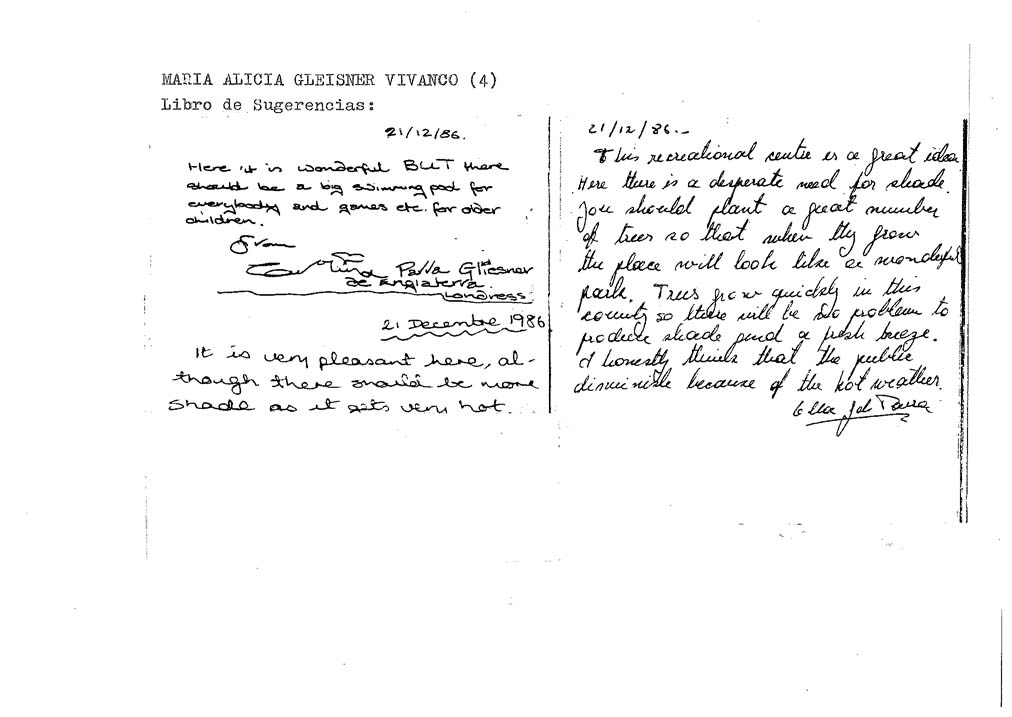 MARIA ALICIA GLEISNER VIVANCO (4)
Libro de Sugerencias:
21/12/86.
Here it is wonderful BUT there
should be a big swimming pool for
everybody and games etc. for older
children.
from
Carolina Parra Gliesner
de Anglaterra.
Londress.
21 Decembre 1986
It is very pleasant here, al-
though there should be more
shade as it gets very hot.
21/12/86.-
This recreational centre is a great idea
Here there is a desperate need for shade.
You should plant a great number
of trees so that when they grow
the place will look like a wonderful
park. Trees grow quickly in this
county so there will be no problem to
produce shade and a fresh breeze.
I honestly think that the public
diminishe because of the hot weather.
de Parra